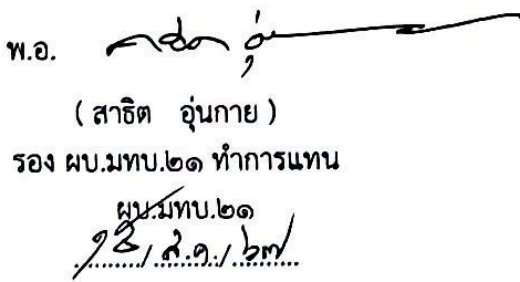 พ.อ.
( สาธิต อุ่นกาย )
รอง ผบ.มทบ.๒๑ ทำการแทน
ผบ.มทบ.๒๑
/ ส.ค. / ๖๗